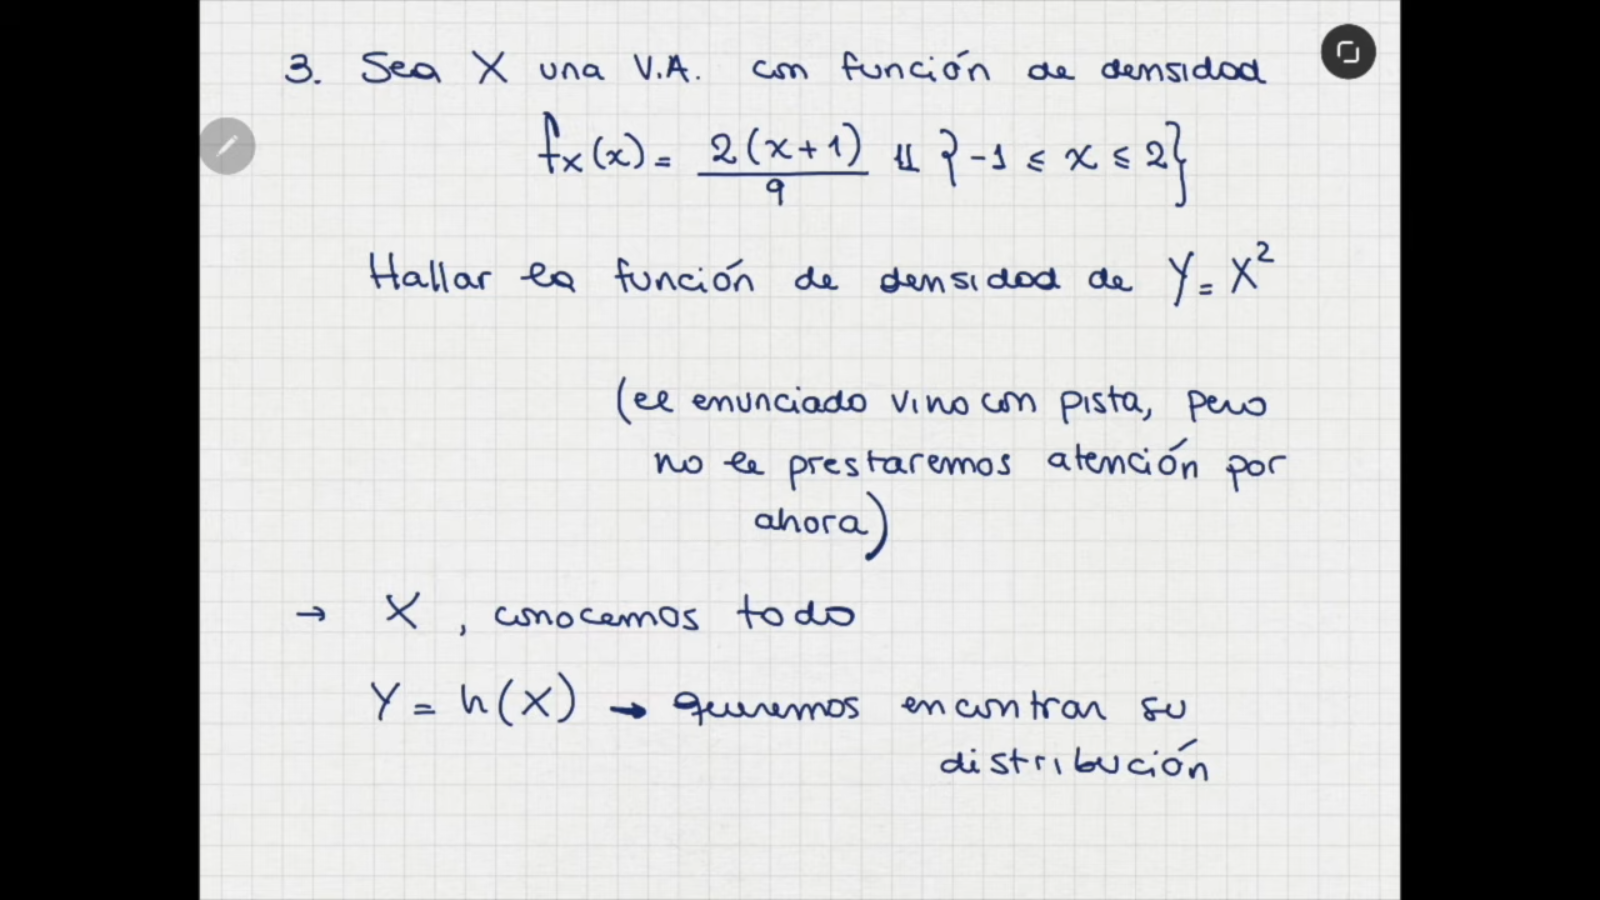 3. Sea X una V.A. con función de densidad
fx(x) = 2(x+1)/9 1{-1 ≤ x ≤ 2}
Hallar la función de densidad de Y = X²
(el enunciado vino con pista, pero
no le prestaremos atención por
ahora)
→ X, conocemos todo
Y = h(X) → queremos encontrar su
distribución